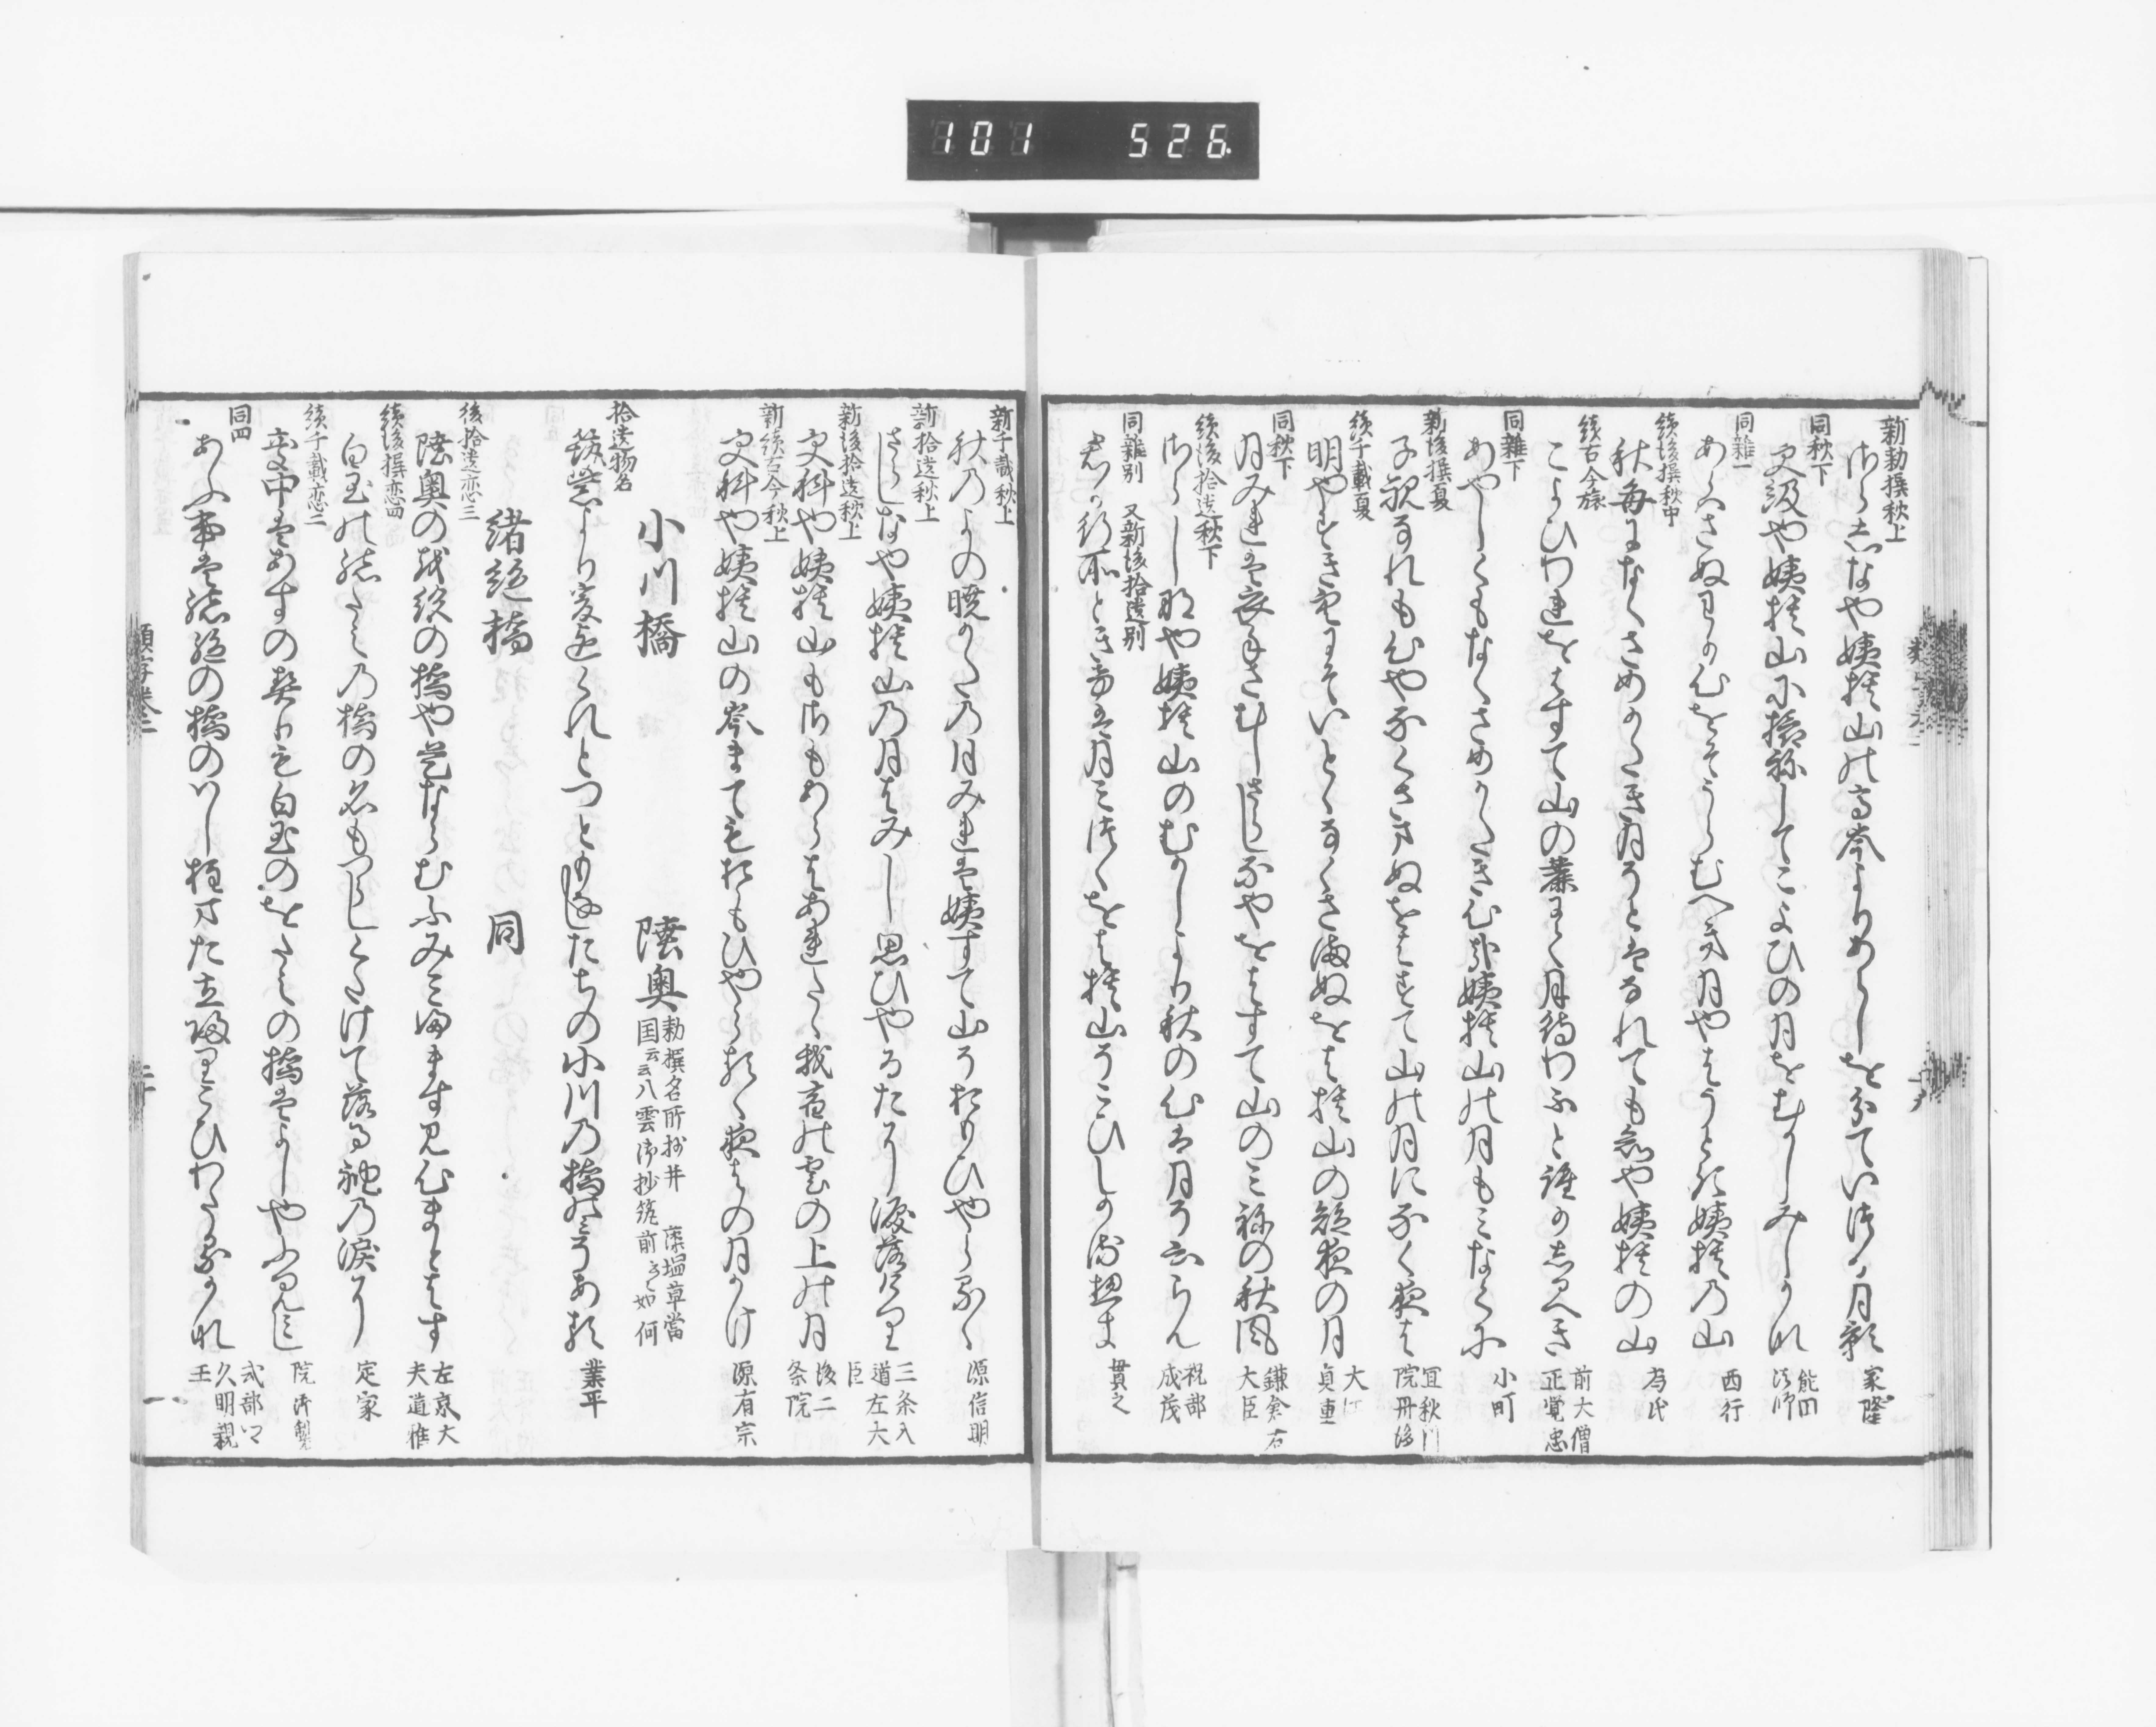 101 526
新勅撰秋上
さらしなや姨捨山の高峯よりあらしを分ていつる月影 家隆
同秋下
更級や姨捨山に旅ねしてこよひの月をむかしみしかな 能因法師
同雑一
あらはさぬわか心をそうらむへき月やはうとき姨捨の山 西行
続後撰秋中
秋毎になくさめかたき月そとはなれても志るや姨捨の山 為氏
続古今旅
こよひわれをはすて山の麓にて月待わふと誰かしるへき 前大僧正覚忠
同雑下
あやしくもなくさめかたき心哉姨捨山の月もみなくに 小町
新後撰夏
子規なれも心やなくさまぬをはすて山の月になく夜は 宜秋門院丹後
続千載夏
明やすき空にそいとゝなくさまぬをは捨山の短夜の月 大江貞重
同秋下
月みれは衣手さむしさらしなやをはすて山のみねの秋風 鎌倉右大臣
続後拾遺秋下
さらしなや姨捨山のむかしより秋の心は月そしらん 祝部成茂
同雑別 又新後拾遺別
君か行所ときけは月みつゝをは捨山そこひしかるへき 貫之
新千載秋上
秋のよの暁かたの月みれは姨すて山そおもひやらるゝ 源信明
新拾遺秋上
さらしなや姨捨山の月はみし思ひやるたに涙落けり 三条入道左大臣
新後拾遺秋上
更科や姨捨山もさもあらはあれたゝ我宿の雲の上の月 後二条院
新続古今秋上
更科や姨捨山の峯まてもおもひやらるゝ夜はの月かけ 源有宗
小川橋 陸奥 勅撰名所抄井 藻塩草當国云云八雲御抄筑前云云如何
拾遺物名
筑紫よりこゝまてくれとつともなしたちの小川の橋のみそある 業平
緒絶橋 同
後拾遺恋三
陸奥のをたえの橋や是ならむふみみふますみ心まとはす 左京大夫道雅
続後撰恋四
白玉のをたえの橋の名もつらしくたけて落る袖の涙に 定家
続千載恋二
夢中はあすの契りも白玉のをたえの橋はよしやふみみし 院御製
同四
あふ事はをたえの橋のはし柱またたち帰りこひわたるかな 式部卿久明親王
類字巻二
二十一